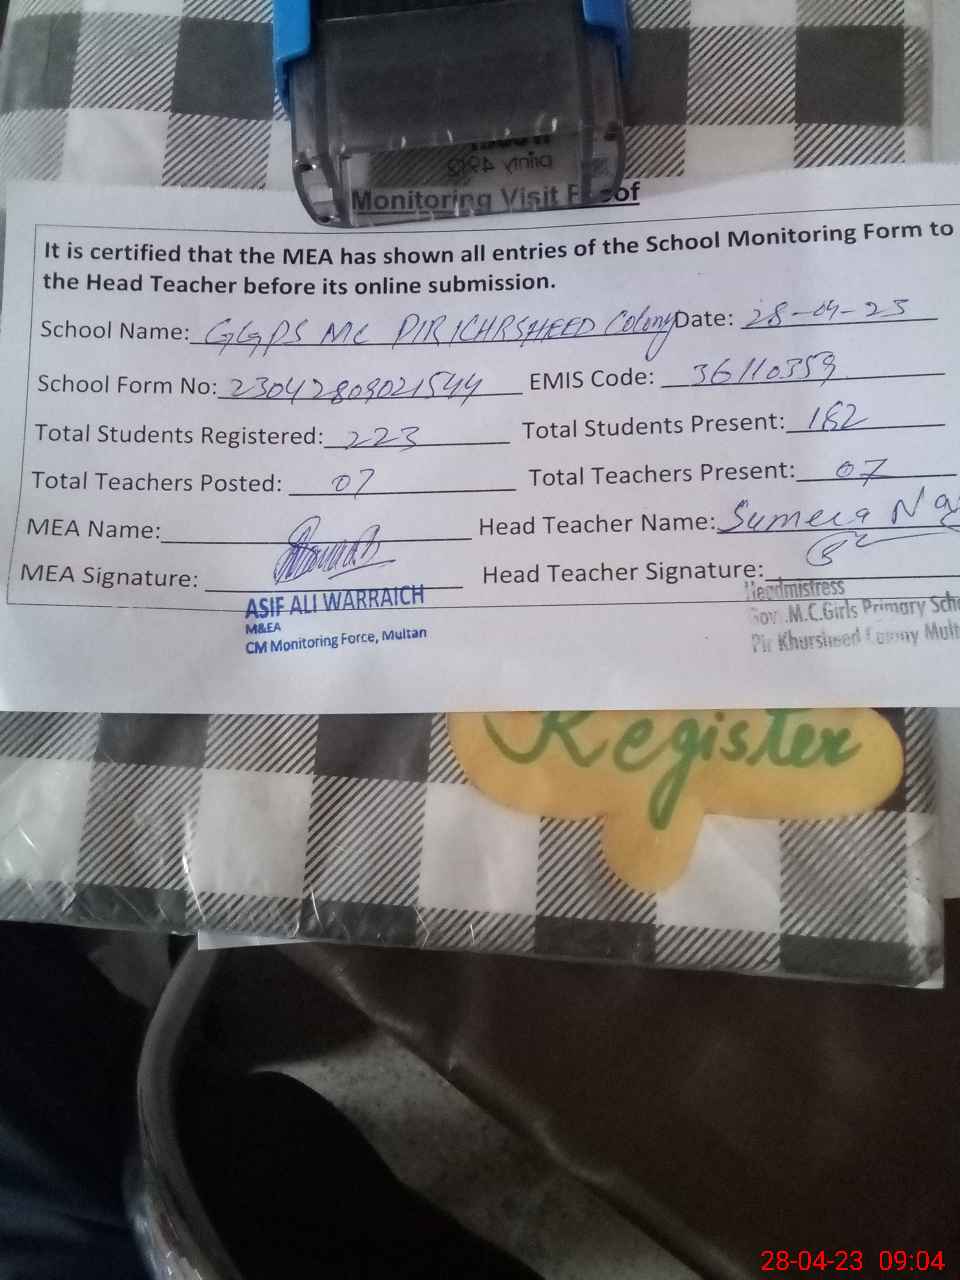 Printy 4912
Monitoring Visit Proof
It is certified that the MEA has shown all entries of the School Monitoring Form to
the Head Teacher before its online submission.
School Name: GGPS MC PIR KHRSHEED Colony Date: 28-04-23
School Form No: 23042809021544 EMIS Code: 36110359
Total Students Registered: 223 Total Students Present: 182
Total Teachers Posted: 07 Total Teachers Present: 07
MEA Name: Head Teacher Name: Sumera
MEA Signature: Head Teacher Signature:
ASIF ALI WARRAICH
M&EA
CM Monitoring Force, Multan
Headmistress
Gov .M.C.Girls Primary Scho
Pir Khursheed Colony Mult
Register
28-04-23 09:04